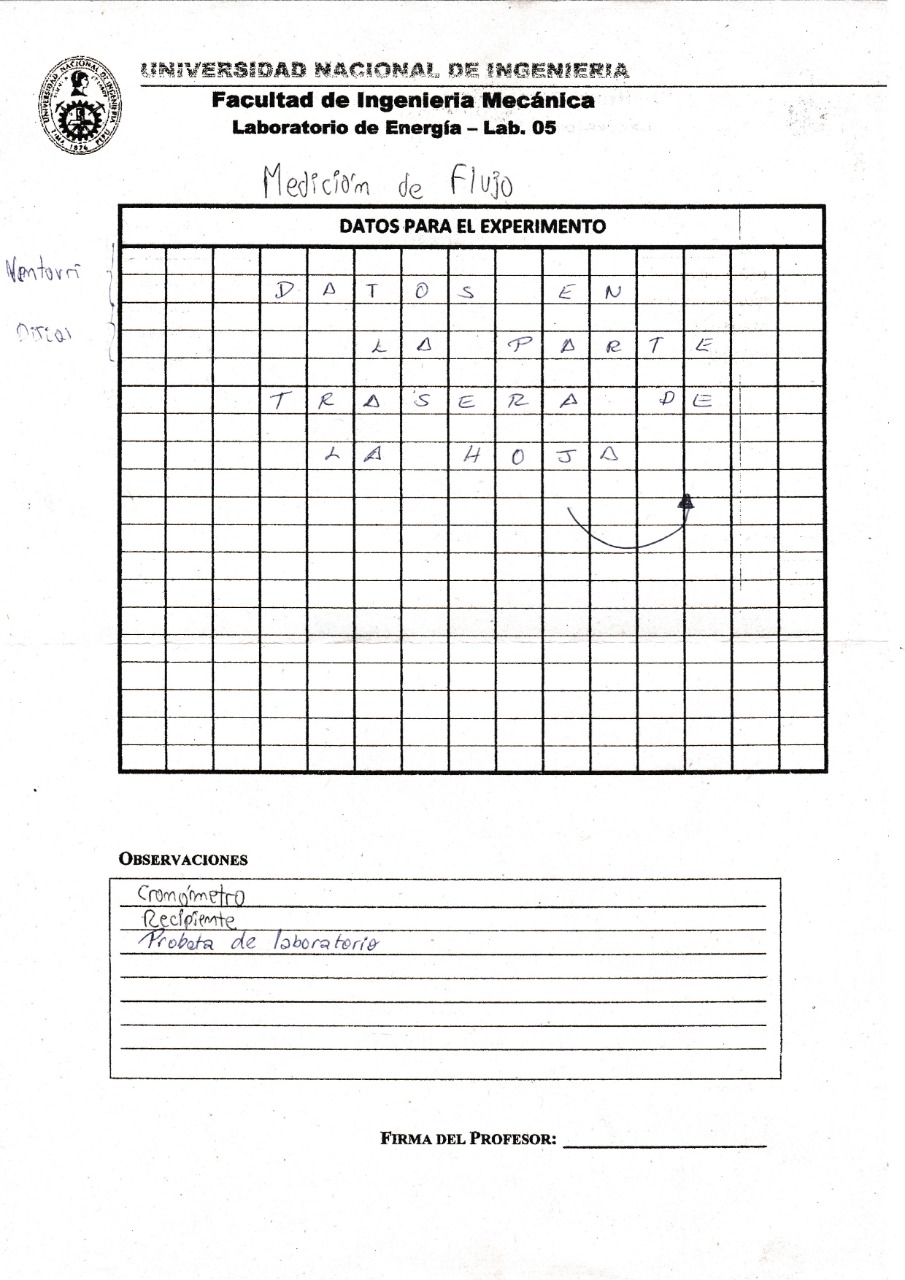 UNIVERSIDAD NACIONAL DE INGENIERIA
Facultad de Ingenieria Mecánica
Laboratorio de Energía – Lab. 05
Medición de Flujo
DATOS PARA EL EXPERIMENTO
Venturi
DATOS EN
LA PARTE
TRASERA DE
LA HOJA
OBSERVACIONES
Cronómetro
Recipiente
Probeta de laboratorio
FIRMA DEL PROFESOR: